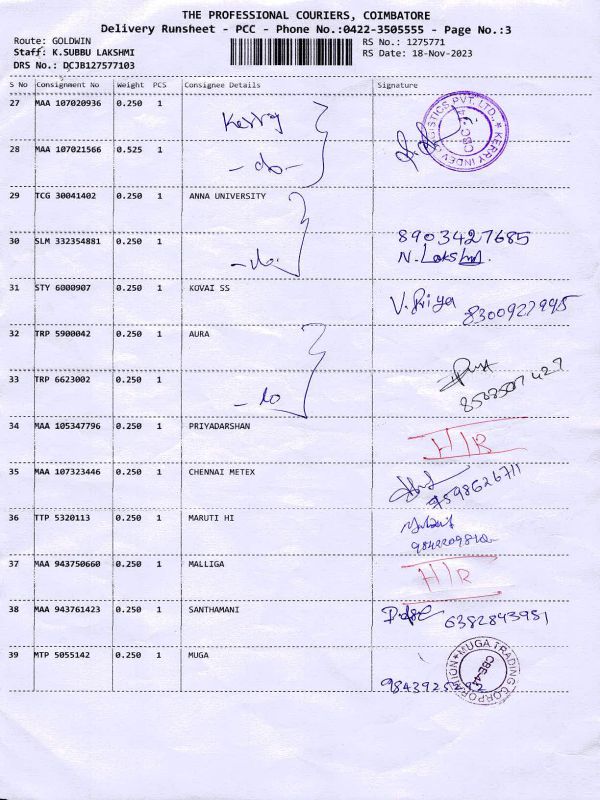 THE PROFESSIONAL COURIERS, COIMBATORE
Delivery Runsheet - PCC - Phone No.:0422-3505555 - Page No.:3
Route: GOLDWIN
Staff: K.SUBBU LAKSHMI
DRS No.: DCJB127577103
RS No.: 1275771
RS Date: 18-Nov-2023
S No Consignment No Weight PCS Consignee Details Signature
27 MAA 107020936 0.250 1 Kerry
KERRY INDEV LOGISTICS PVT. LTD.,
28 MAA 107021566 0.525 1 - do -
29 TCG 30041402 0.250 1 ANNA UNIVERSITY
30 SLM 332354881 0.250 1 - do. 8903427685
N. Lakshmi.
31 STY 6000907 0.250 1 KOVAI SS V. Priya 8300927995
32 TRP 5900042 0.250 1 AURA
33 TRP 6623002 0.250 1 - do
34 MAA 105347796 0.250 1 PRIYADARSHAN H/R
35 MAA 107323446 0.250 1 CHENNAI METEX 9598626711
36 TTP 5320113 0.250 1 MARUTI HI
37 MAA 943750660 0.250 1 MALLIGA H/R
38 MAA 943761423 0.250 1 SANTHAMANI 6382843981
39 MTP 5055142 0.250 1 MUGA 9843925292
MUGA TRADING CORPORATION